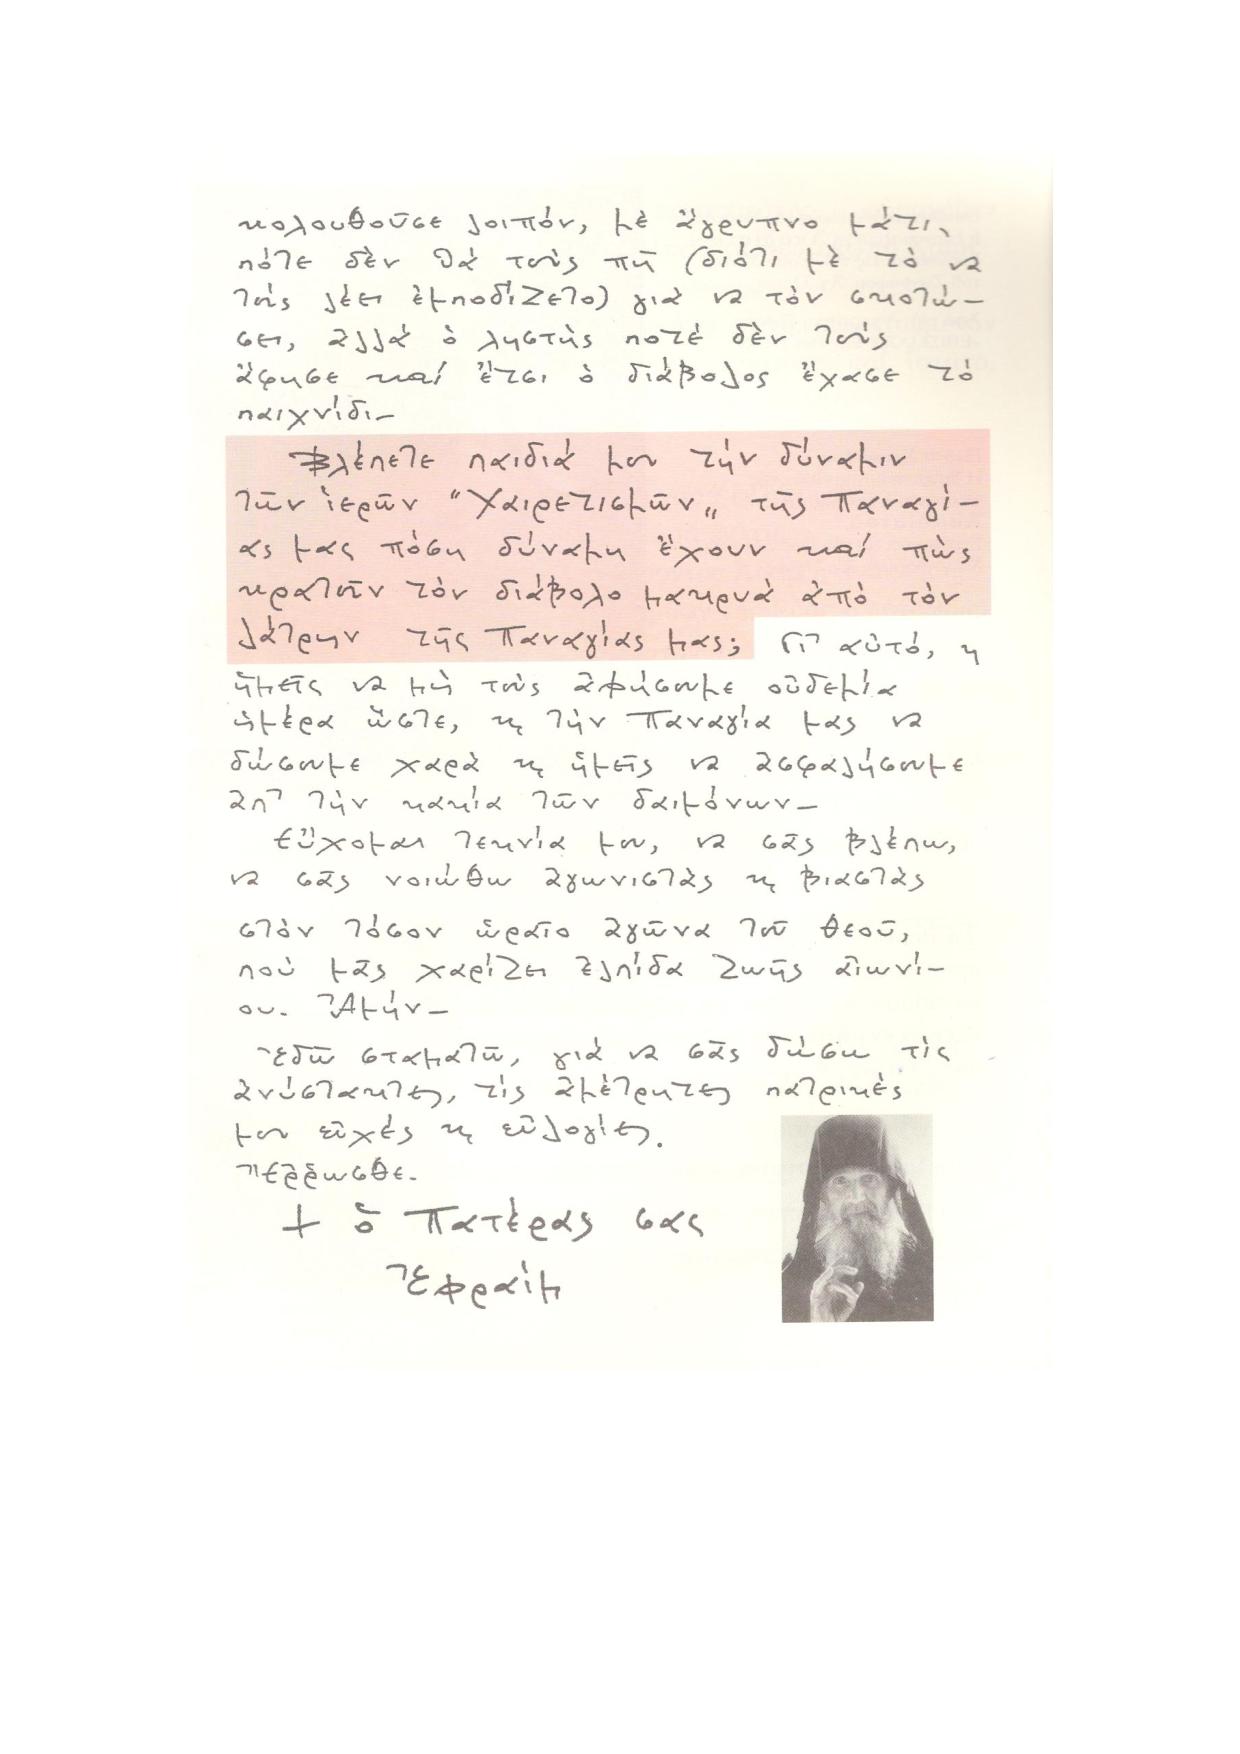 κολουθοῦσε λοιπόν, μὲ ἄγρυπνο μάτι,
πότε δὲν θά τούς πῆ (διότι μὲ τὸ νὰ
τούς λέει ἐμποδίζετο) γιὰ νὰ τὸν σκοτώ-
σει, ἀλλά ὁ ληστὴς ποτέ δὲν τούς
ἄφησε καί ἔτσι ὁ διάβολος ἔχασε τὸ
παιχνίδι-
Βλέπετε παιδιά μου τήν δύναμιν
τῶν ἱερῶν "Χαιρετισμῶν„ τῆς Παναγί-
ας μας πόση δύναμη ἔχουν καί πὼς
κρατοῦν τὸν διάβολο μακρυὰ ἀπὸ τὸν
λάτρην τῆς Παναγίας μας; Γι' αὐτό, ϗ
ἡμεῖς νὰ μὴ τοὺς ἀφήσουμε οὐδεμία
ἡμέρα ὥστε, ϗ τὴν Παναγία μας νὰ
δώσουμε χαρὰ ϗ ἡμεῖς νὰ ἀσφαλήσουμε
ἀπ' τὴν κακία τῶν δαιμόνων-
Εὔχομαι τεκνία μου, νὰ σᾶς βλέπω,
νὰ σᾶς νοιώθω ἀγωνιστὰς ϗ βιαστὰς
στὸν τόσον ὡραῖο ἀγῶνα τοῦ Θεοῦ,
ποὺ μᾶς χαρίζει ἐλπίδα ζωῆς αἰωνί-
ου. Ἀμήν-
Ἐδῶ σταματῶ, γιὰ νὰ σᾶς δώσω τὶς
ἀνύστακτες, τὶς ἀμέτρητες πατρικές
μου εὐχές ϗ εὐλογίες.
Ἔῤῥωσθε.
+ ὁ Πατέρας σας
Ἐφραίμ